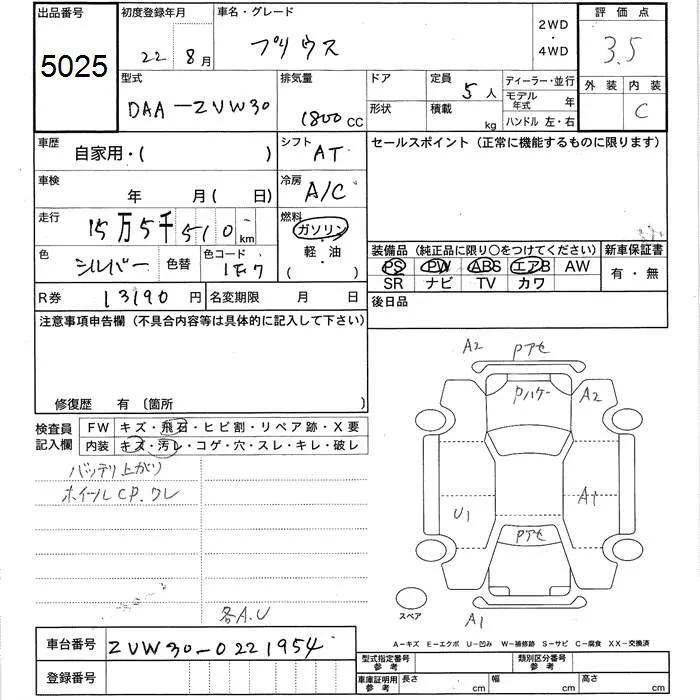 出品番号
5025
初度登録年月
22 8月
車名・グレード
プリウス
2WD
・
4WD
評価点
3.5
外装 内装
C
型式
DAA-ZVW30
排気量
1800 CC
ドア
形状
定員
5人
積載
kg
ディーラー・並行
モデル年式 年
ハンドル 左・右
車歴
自家用・( )
シフト
AT
セールスポイント(正常に機能するものに限ります)
車検
年 月( 日)
冷房
A/C
走行
15万5千510km
燃料
ガソリン
・
軽油
・
( )
色
シルバー
色替
色コード
1F7
装備品(純正品に限り○をつけてください)
新車保証書
PS PW ABS エアB AW
有・無
SR ナビ TV カワ
R券 13190円
名変期限 月 日
後日品
注意事項申告欄(不具合内容等は具体的に記入して下さい)
修復歴 有 〔箇所 〕
検査員
記入欄
FW キズ・飛石・ヒビ割・リペア跡・X要
内装 キズ・汚レ・コゲ・穴・スレ・キレ・破レ
バッテリ上がり
ホイールCP.ワレ
各A.U
A2
Pアセ
Pハケー
A2
U1
A1
Pアセ
A1
スペア
A-キズ E-エクボ U-凹み W-補修跡 S-サビ C-腐食 XX-交換済
車台番号 ZVW30-0221954
登録番号
型式指定番号
参考
類別区分番号
参考
車庫証明用
参考
長さ cm
幅 cm
高さ cm